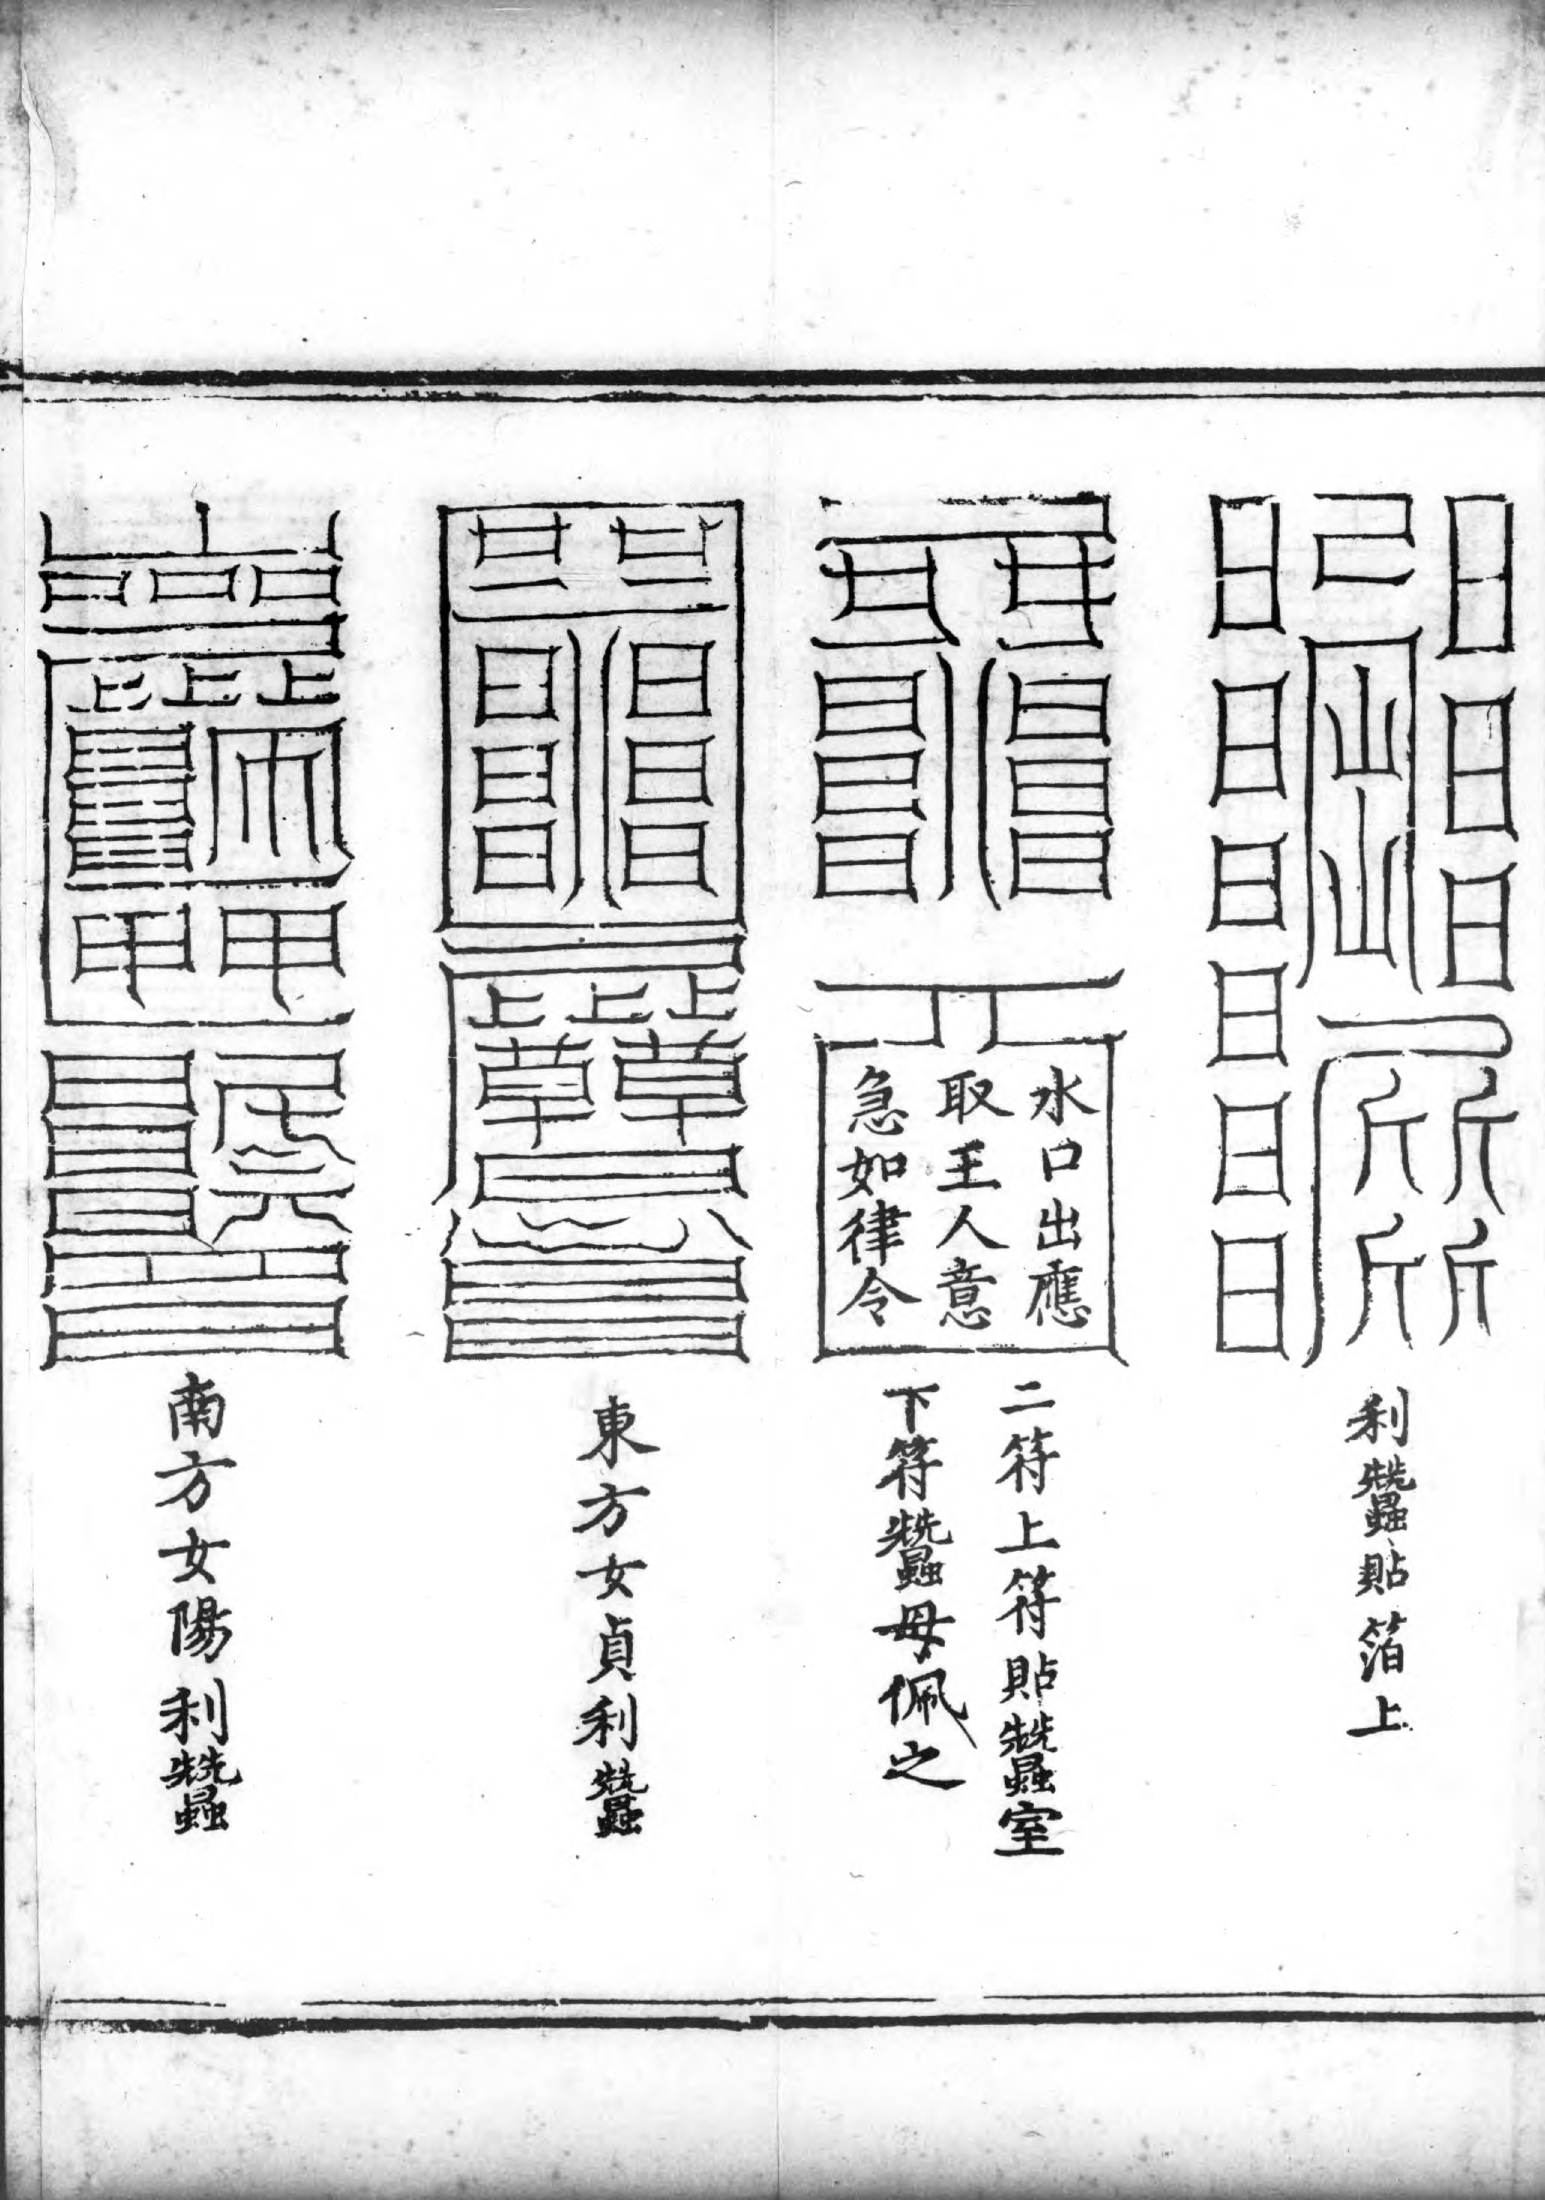 利蠶貼箔上
水口出應
取王人意
急如律令
二符上符貼蠶室
下符蠶母佩之
東方女貞利蠶
南方女陽利蠶